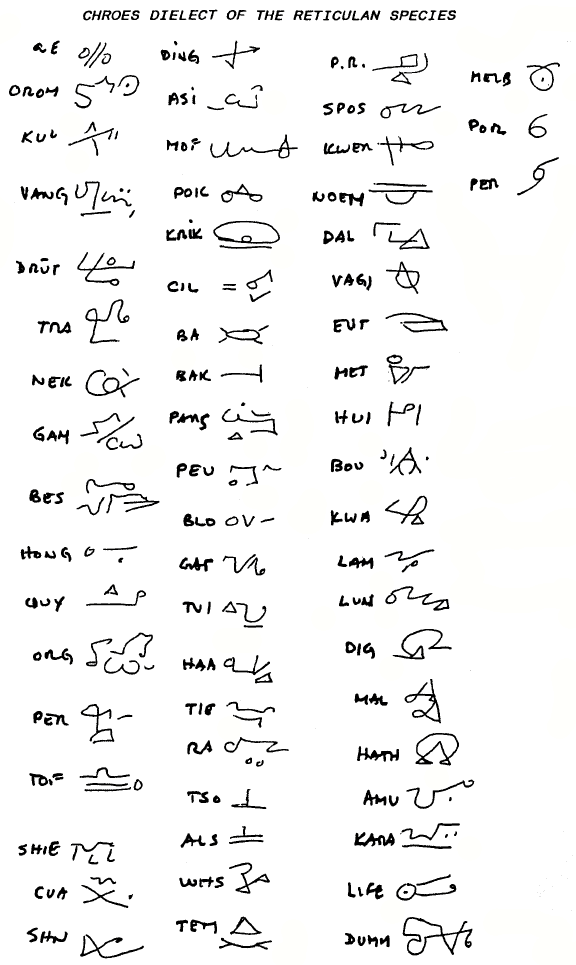 CHROES DIELECT OF THE RETICULAN SPECIES
OROM
KUL
VANG
DRŪT
TRA
NEK
GAM
BES
HONG
QUY
ORG
PER
TOIF
SHIE
CUA
SHN
DING
ASI
MOF
POIC
KRIK
CIL
BA
BAK
PANG
PEU
BLO
GAT
TUI
HAA
TIE
RA
TSO
ALS
WHS
TEM
P.R.
SPOS
KWEN
NOEM
DAL
VAGI
EUT
MET
HUI
BOU
KWA
LAM
LUN
DIG
MAL
HATH
AMU
KARA
LIFE
DUMM
MELB
POR
PER